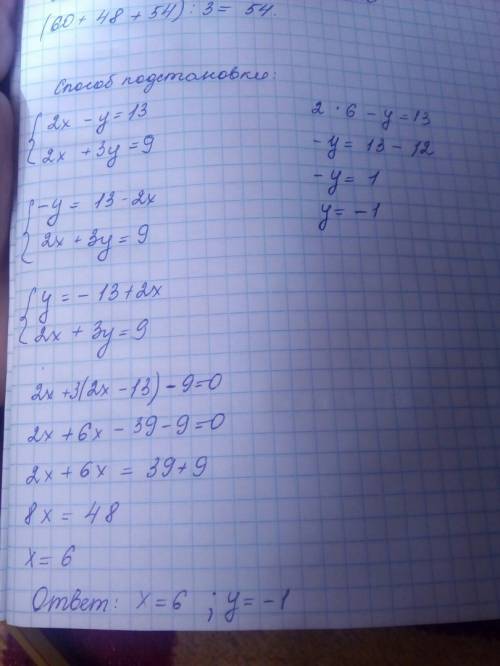 (60 + 48 + 54) : 3 = 54.
Способ подстановки:
{ 2x - y = 13
2x + 3y = 9
{ -y = 13 - 2x
2x + 3y = 9
{ y = - 13 + 2x
2x + 3y = 9
2x + 3(2x - 13) - 9 = 0
2x + 6x - 39 - 9 = 0
2x + 6x = 39 + 9
8x = 48
x = 6
Ответ: x = 6 ; y = -1
2 · 6 - y = 13
-y = 13 - 12
-y = 1
y = -1